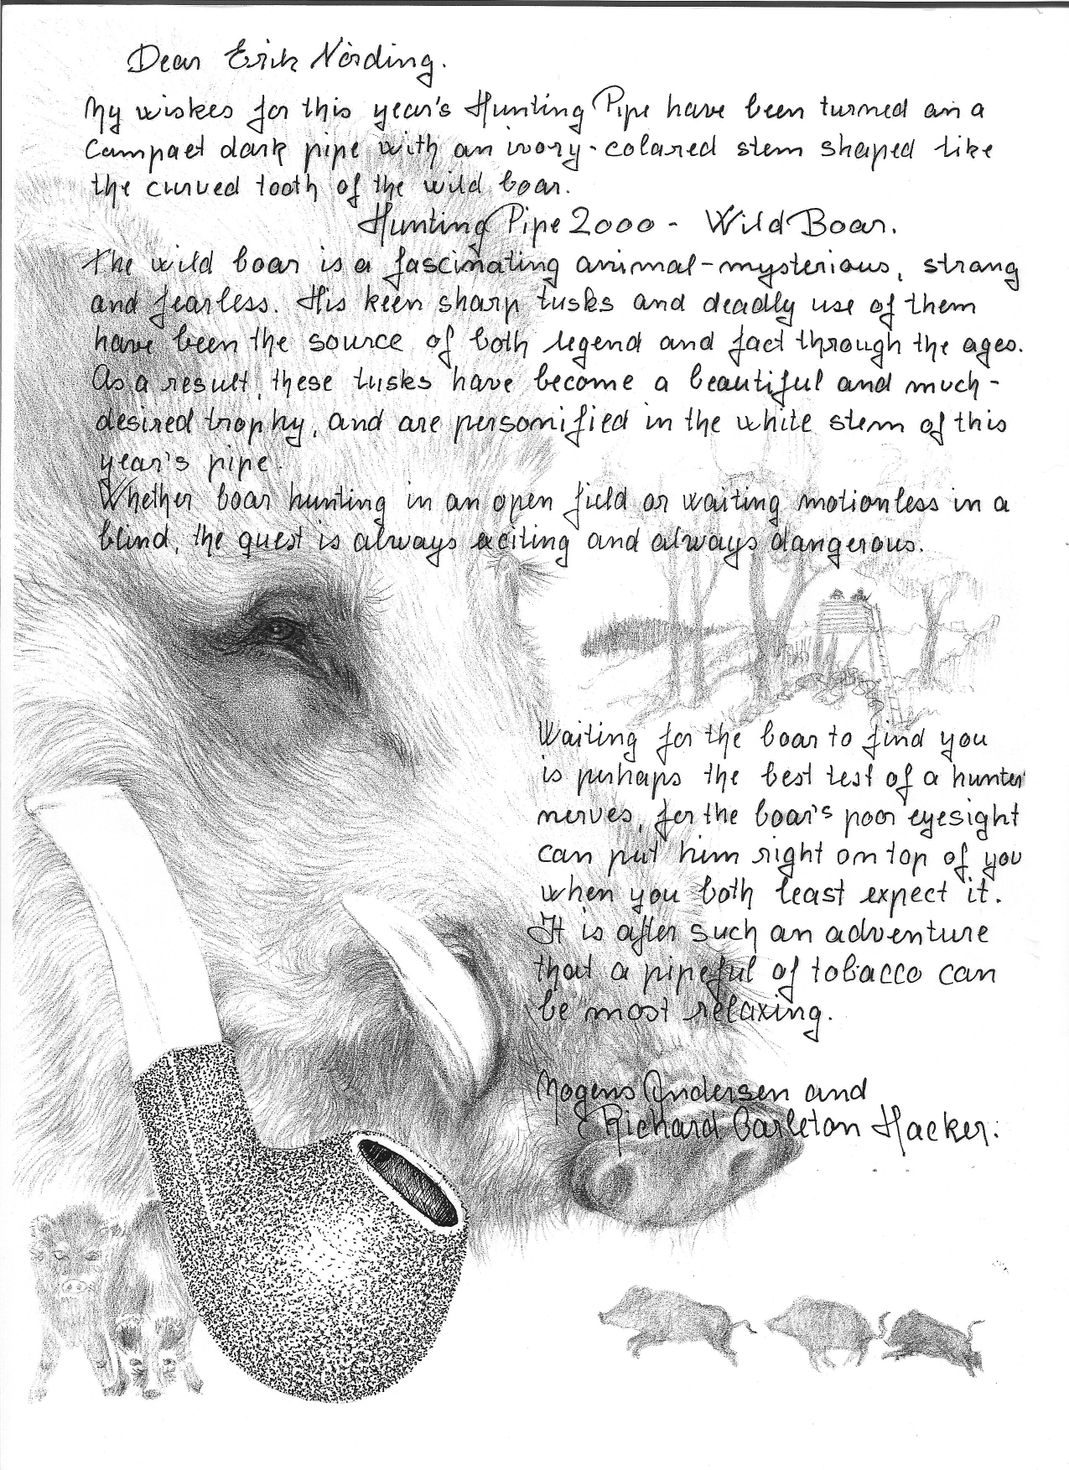 Dear Erik Nörding.
My wiskes for this year's Hunting Pipe have been turned on a
Compact dark pipe with an ivory-colored stem shaped like
the curved tooth of the wild boar.
Hunting Pipe 2000 - Wild Boar.
The wild boar is a fascinating animal-mysterious, strong
and fearless. His keen sharp tusks and deadly use of them
have been the source of both legend and fact through the ages.
As a result, these tusks have become a beautiful and much-
desired trophy, and are personified in the white stem of this
year's pipe.
Whether boar hunting in an open field or waiting motionless in a
blind, the quest is always exciting and always dangerous.
Waiting for the boar to find you
is perhaps the best test of a hunter'
nerves, for the boar's poor eyesight
can put him right on top of you
when you both least expect it.
It is after such an adventure
that a pipeful of tobacco can
be most relaxing.
Mogens Andersen and
Richard Carleton Hacker.